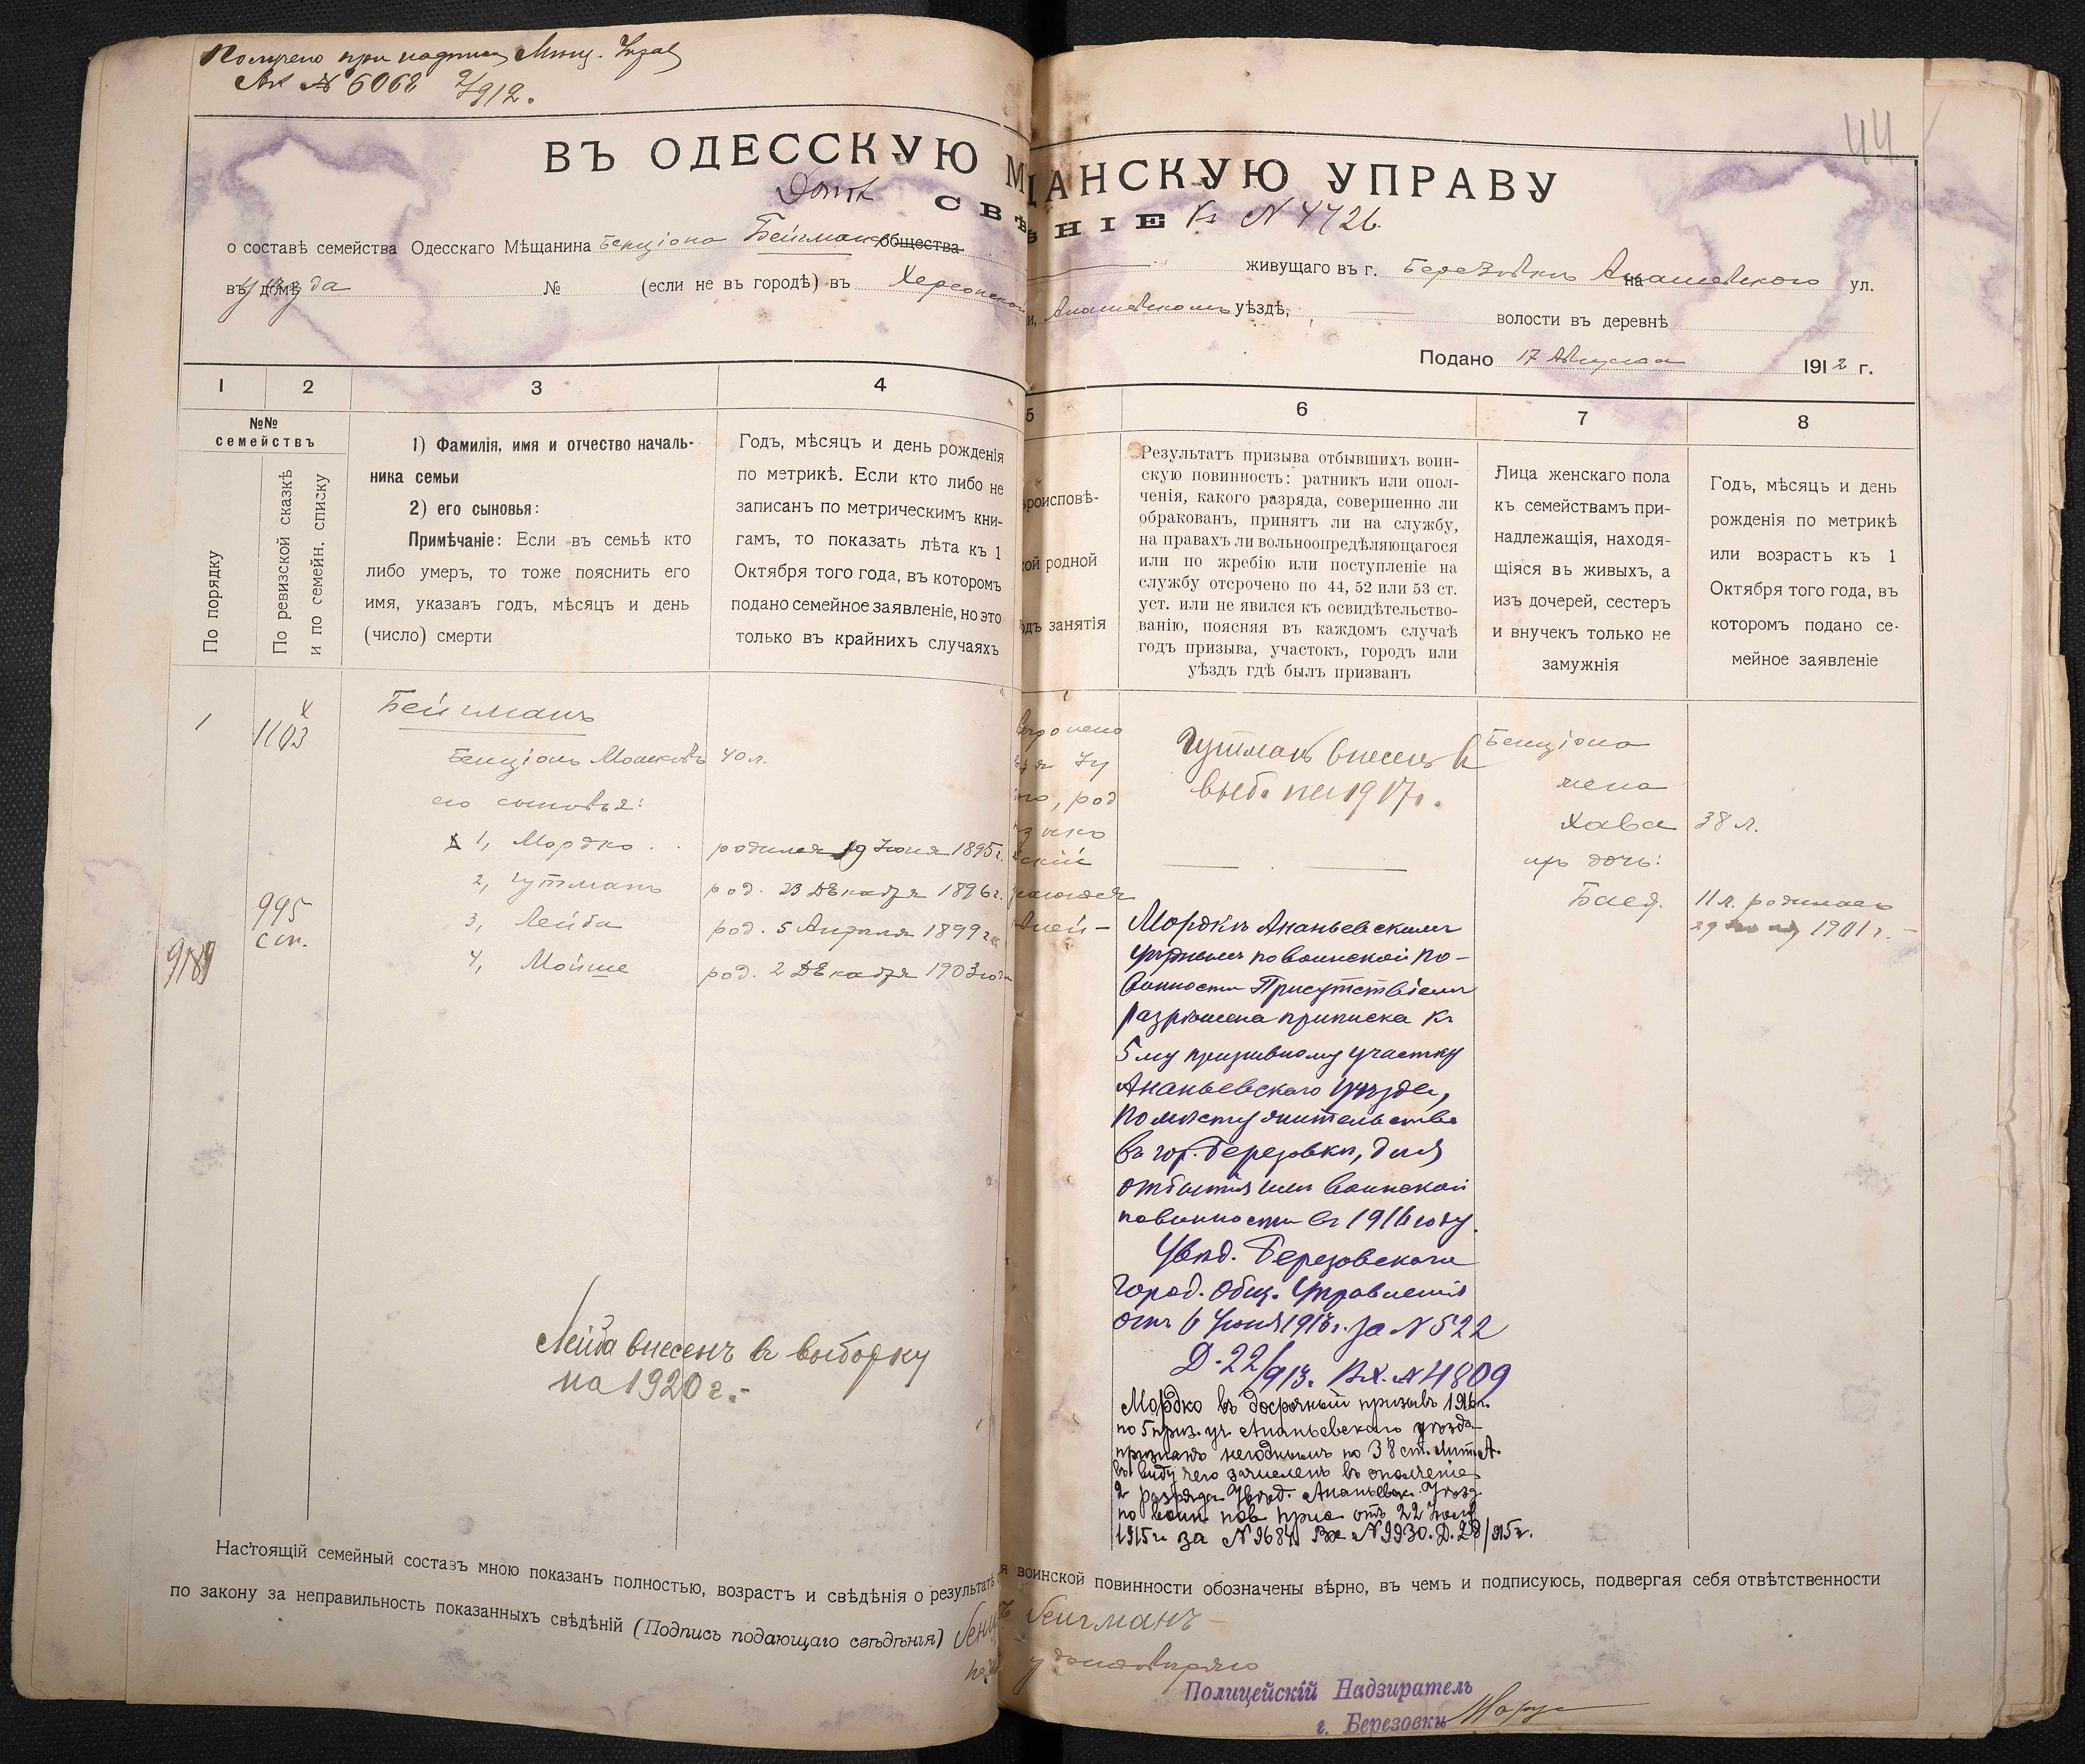 Получено при надписи Мѣщ. Упр.
№ 6068 1912.
44
ВЪ ОДЕССКУЮ М ЩАНСКУЮ УПРАВУ
СВѢ НІЕ Къ № 4726.
о составѣ семейства Одесскаго Мѣщанина Бенціона Бейгмана общества
живущаго въ г. Березовкѣ Ананьевского на ул.
въ домѣ уѣзда № (если не въ городѣ) въ Херсонской
Ананьевскомъ уѣздѣ, волости въ деревнѣ
Подано 17 Августа 1912 г.
1 2 3 4 5 6 7 8
№№ семействъ
По порядку
По ревизской сказкѣ
и по семейн. списку
1) Фамилія, имя и отчество началь-
ника семьи
2) его сыновья:
Примѣчаніе: Если въ семьѣ кто
либо умеръ, то тоже пояснить его
имя, указавъ годъ, мѣсяцъ и день
(число) смерти
Годъ, мѣсяцъ и день рожденія
по метрикѣ. Если кто либо не
записанъ по метрическимъ кни-
гамъ, то показать лѣта къ 1
Октября того года, въ которомъ
подано семейное заявленіе, но это
только въ крайнихъ случаяхъ
роисповѣ-
ой родной
одъ занятія
Результатъ призыва отбывшихъ воин-
скую повинность: ратникъ или опол-
ченія, какого разряда, совершенно ли
обракованъ, принятъ ли на службу,
на правахъ ли вольноопредѣляющагося
или по жребію или поступленіе на
службу отсрочено по 44, 52 или 53 ст.
уст. или не явился къ освидѣтельство-
ванію, поясняя въ каждомъ случаѣ
годъ призыва, участокъ, городъ или
уѣздъ гдѣ былъ призванъ
Лица женскаго пола
къ семействамъ при-
надлежащія, находя-
щіяся въ живыхъ, а
изъ дочерей, сестеръ
и внучекъ только не
замужнія
Годъ, мѣсяцъ и день
рожденія по метрикѣ
или возрастъ къ 1
Октября того года, въ
которомъ подано се-
мейное заявленіе
1 1103 Бейгманъ
Бенціонъ Мошковъ 40 л.
его сыновья:
1, Мордко родился 19 Іюня 1895 г.
2, Гутманъ род. 23 Декабря 1896 г.
995 3, Лейба род. 5 Апрѣля 1899 г.
9189 4, Мойше род. 2 Декабря 1903 года
Гутманъ внесенъ въ
выб. на 1917 г.
Бенціона
жена
Хава 38 л.
ихъ дочь:
Бася. 11 л. родилась
1901 г.
Мордкѣ Ананьевскимъ
уѣзднымъ по воинской по-
винности Присутствіемъ
разрѣшена приписка къ
5му призывному участку
Ананьевскаго уѣзда,
по мѣсту жительства
въ гор. Березовки, для
отбытія имъ воинской
повинности въ 1916 году.
Увѣд. Березовскаго
Город. Общ. Управленія
отъ 6 Іюня 1913 г. за № 522
Д. 22/913. Вх. № 4809
Мордко въ досрочный призывъ 1916 г.
по 5 приз. уч. Ананьевскаго уѣзда
признанъ негоднымъ по 38 ст. лит. А.
въ виду чего зачисленъ въ ополченіе
2 разряда Увѣд. Ананьевск. Уѣзд.
по воин. пов. прис. отъ 22
1915 г. за № 9684 Вх № 9930. Д. 28/915 г.
Лейба внесенъ въ выборку
на 1920 г.
Настоящій семейный составъ мною показанъ полностью, возрастъ и свѣдѣнія о результатѣ я воинской повинности обозначены вѣрно, въ чемъ и подписуюсь, подвергая себя отвѣтственности
по закону за неправильность показанныхъ свѣдѣній (Подпись подающаго свѣдѣнія) Бейгманъ
удостовѣряю
Полицейскій Надзиратель
г. Березовки